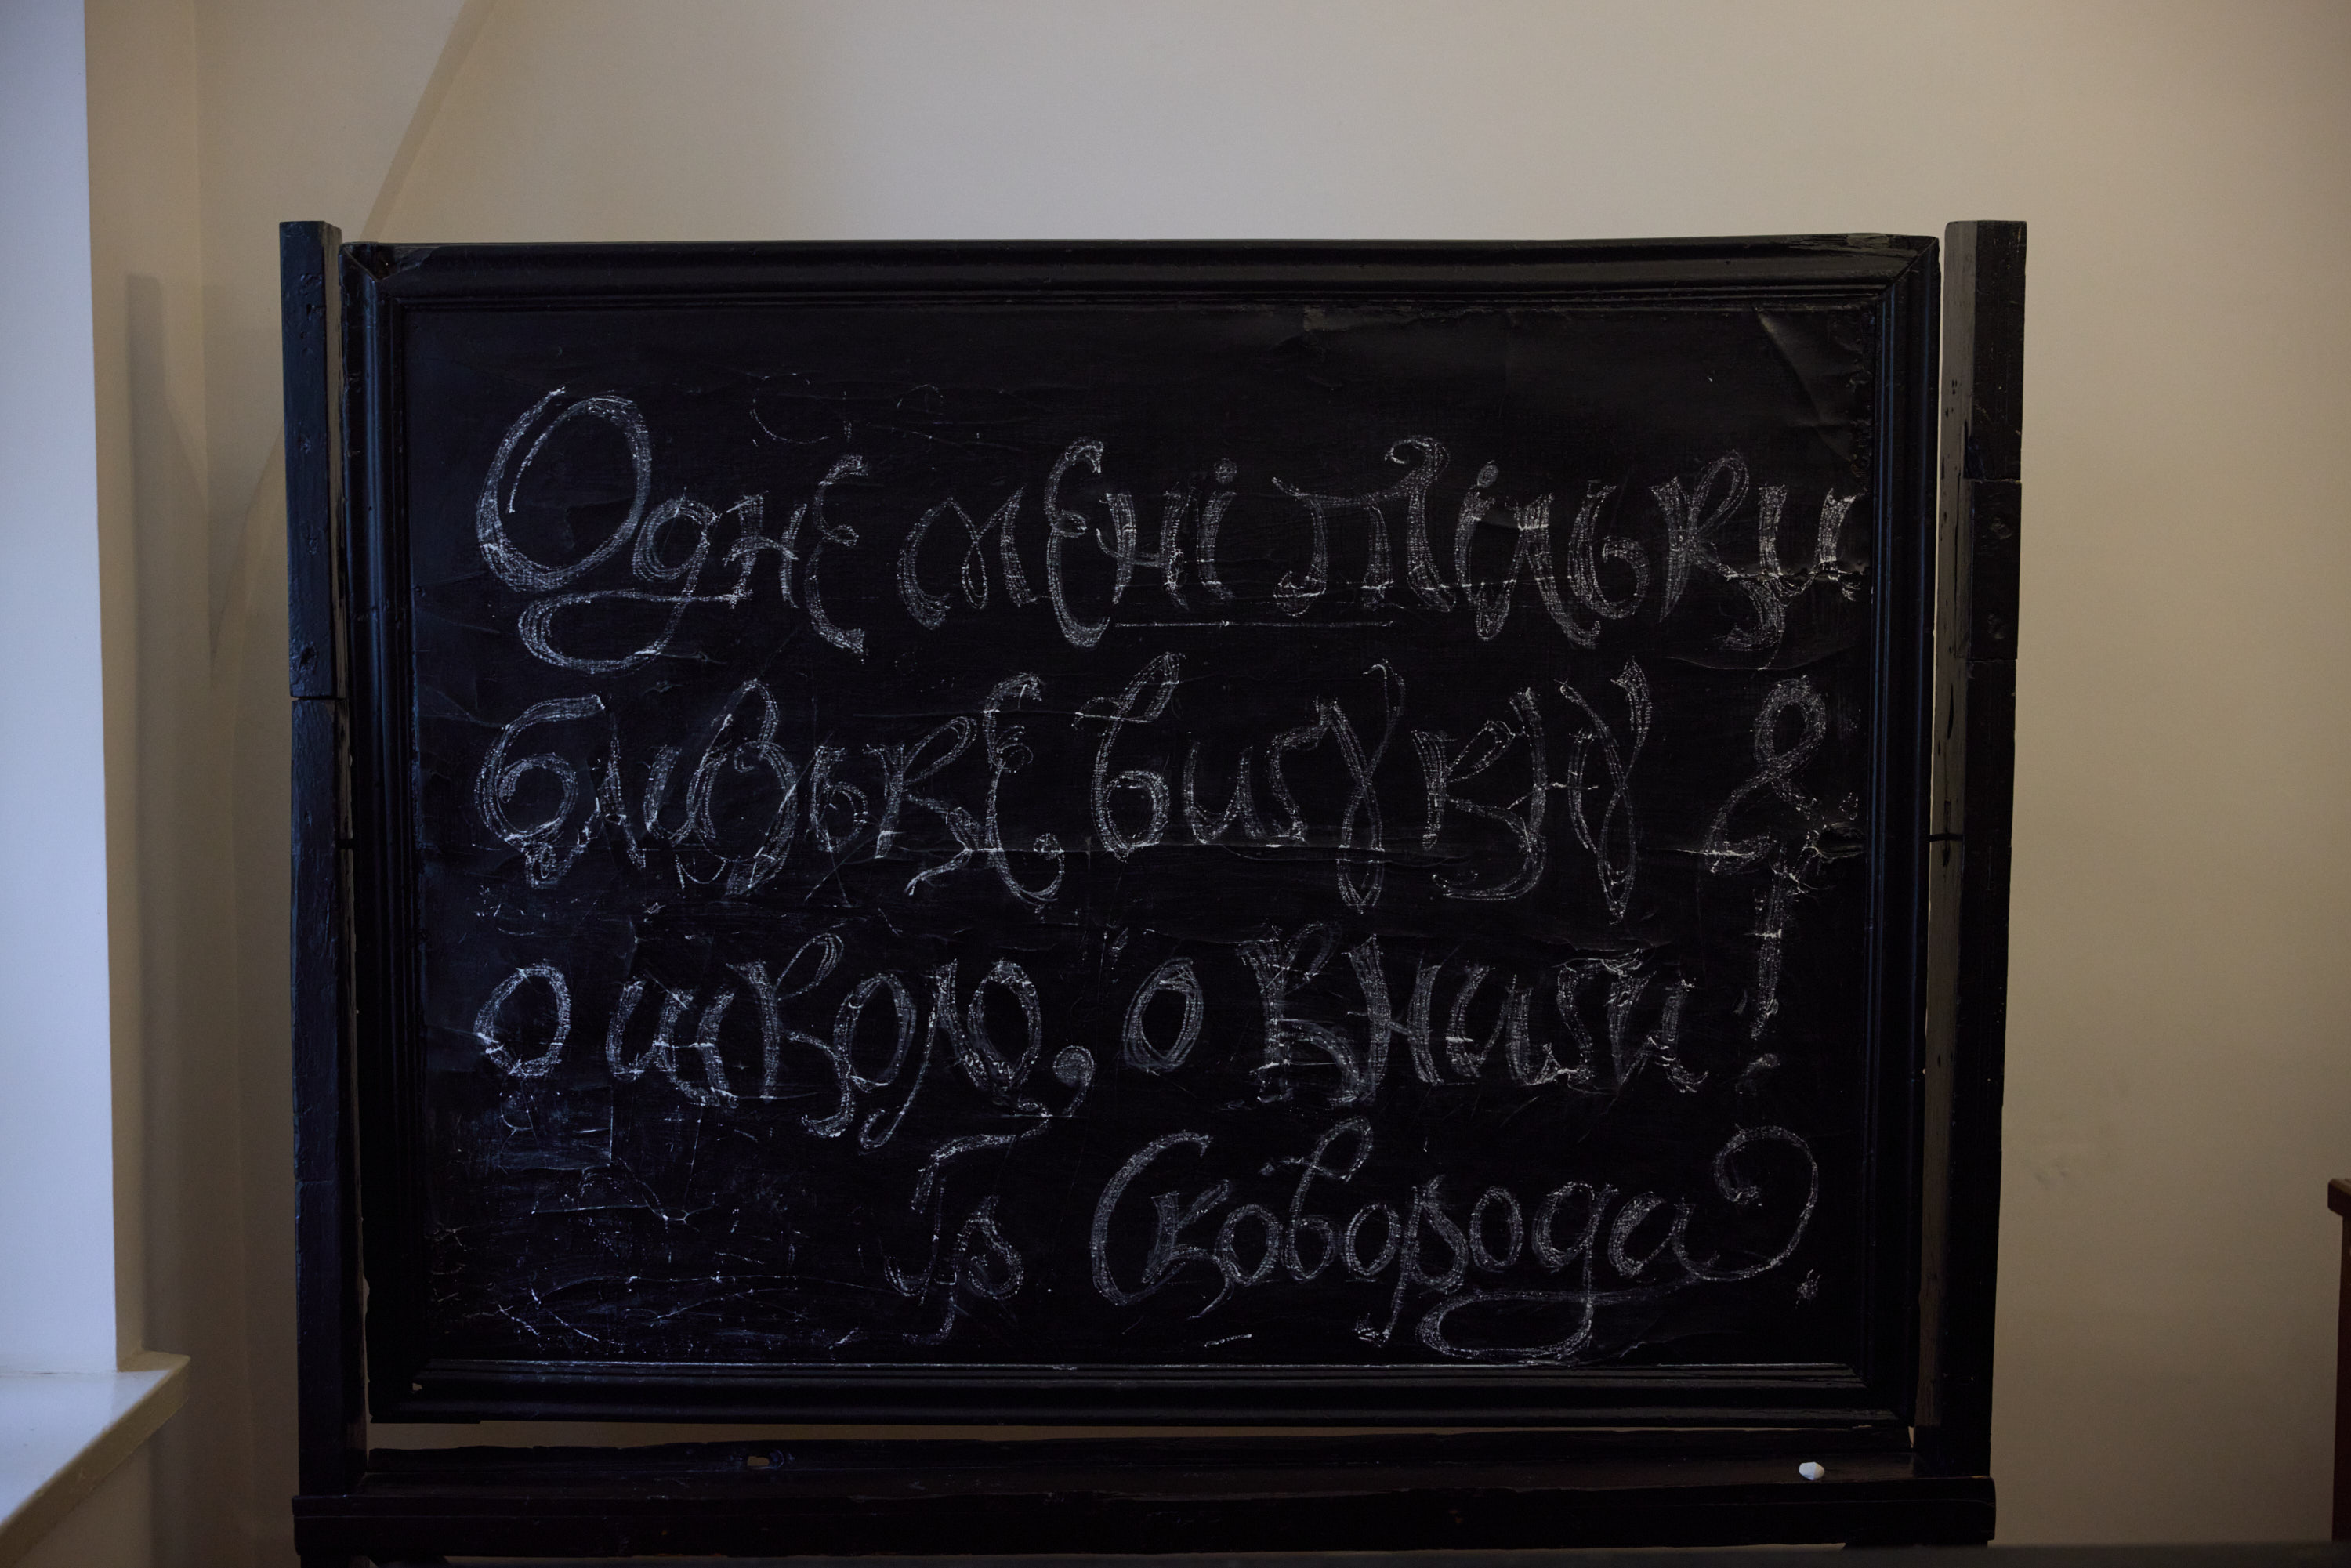 Одне мені тільки
близьке вигукну я:
о школо, о книги!
Гр. Сковорода